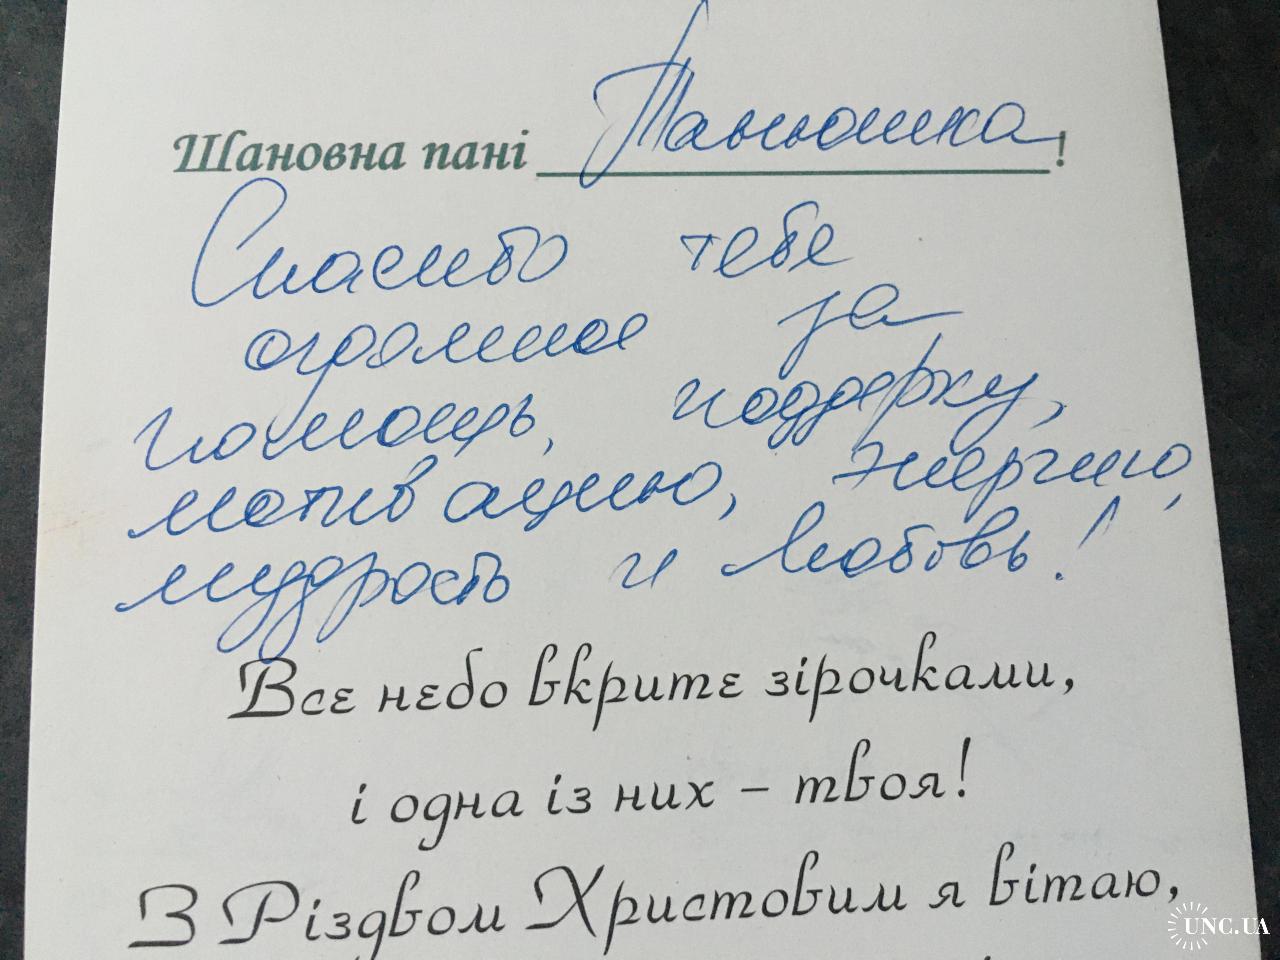 Шановна пані Танюшка!
Спасибо тебе
огромное за
помощь, поддержку,
мотивацию, энергию,
мудрость и любовь!
Все небо вкрите зірочками,
і одна із них – твоя!
З Різдвом Христовим я вітаю,
UNC.UA